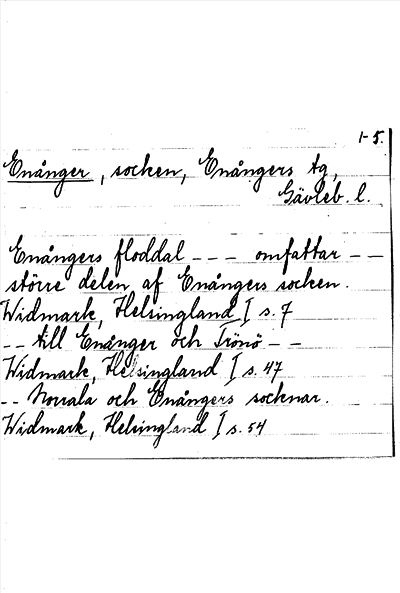 1-5.
Enånger, socken, Enångers tg,
Gävleb. l.
Enångers floddal - - - omfattar - -
större delen af Enångers socken.
Widmark, Helsingland I s. 7
- - till Enånger och Trönö - -
Widmark, Helsingland I s. 47
- - Norrala och Enångers socknar.
Widmark, Helsingland I s. 54